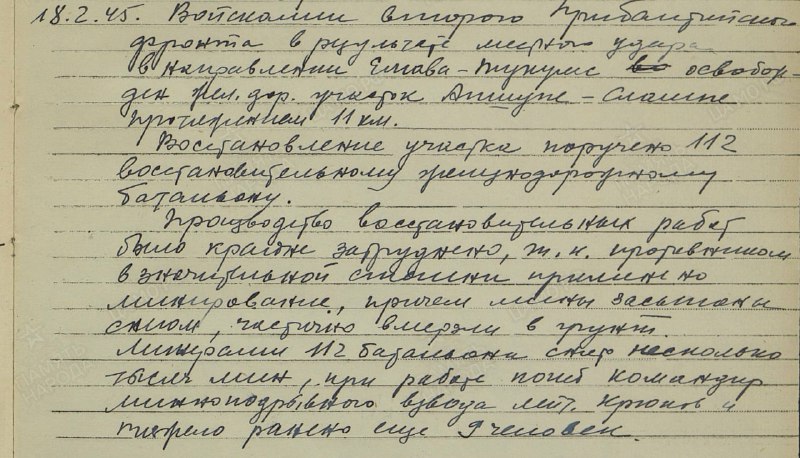 18.2.45. Войсками второго Прибалтийского
фронта в результате местного удара
в направлении Елгава-Тукумс во освобож-
ден жел. дор. участок Апшупе - Слампе
протяжением 11 км.
Восстановление участка поручено 112
восстановительному железнодорожному
батальону.
Производство восстановительных работ
было крайне затруднено, т.к. противником
в значительной степени применено
минирование, причем мины засыпаны
снегом, частично вмерзли в грунт.
Минерами 112 батальона снято несколько
тысяч мин, при работе погиб командир
минноподрывного взвода лейт. Крюков и
тяжело ранено еще 9 человек.